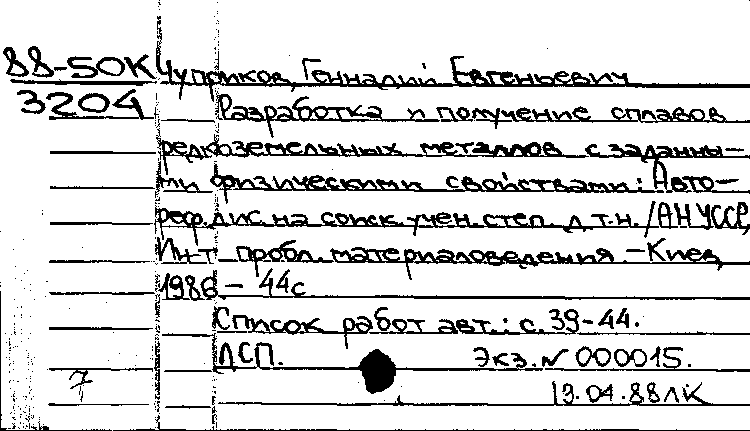 88-50К Чуприков, Геннадий Евгеньевич
3204 Разработка и получение сплавов
редкоземельных металлов с заданны-
ми физическими свойствами: Авто-
реф. дис. на соиск. учен. степ. д.т.н. / АН УССР,
Ин-т пробл. материаловедения. - Киев,
1986. - 44с
Список работ авт.: с. 39-44.
ДСП. Экз. N 000015.
7 19.04.88 ЛК